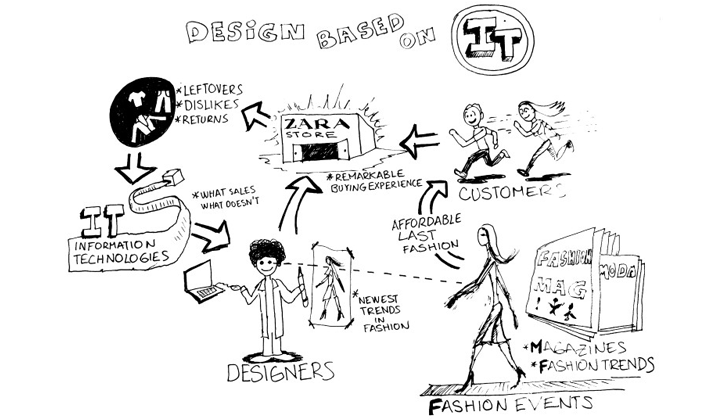 DESIGN BASED ON IT
*LEFTOVERS
*DISLIKES
*RETURNS
ZARA
STORE
*REMARKABLE
BUYING EXPERIENCE
CUSTOMERS
IT
INFORMATION
TECHNOLOGIES
*WHAT SALES
WHAT DOESN'T
AFFORDABLE
LAST
FASHION
DESIGNERS
*NEWEST
TRENDS
IN
FASHION
FASHION
MAG
MODA
*MAGAZINES
*FASHION TRENDS
FASHION EVENTS